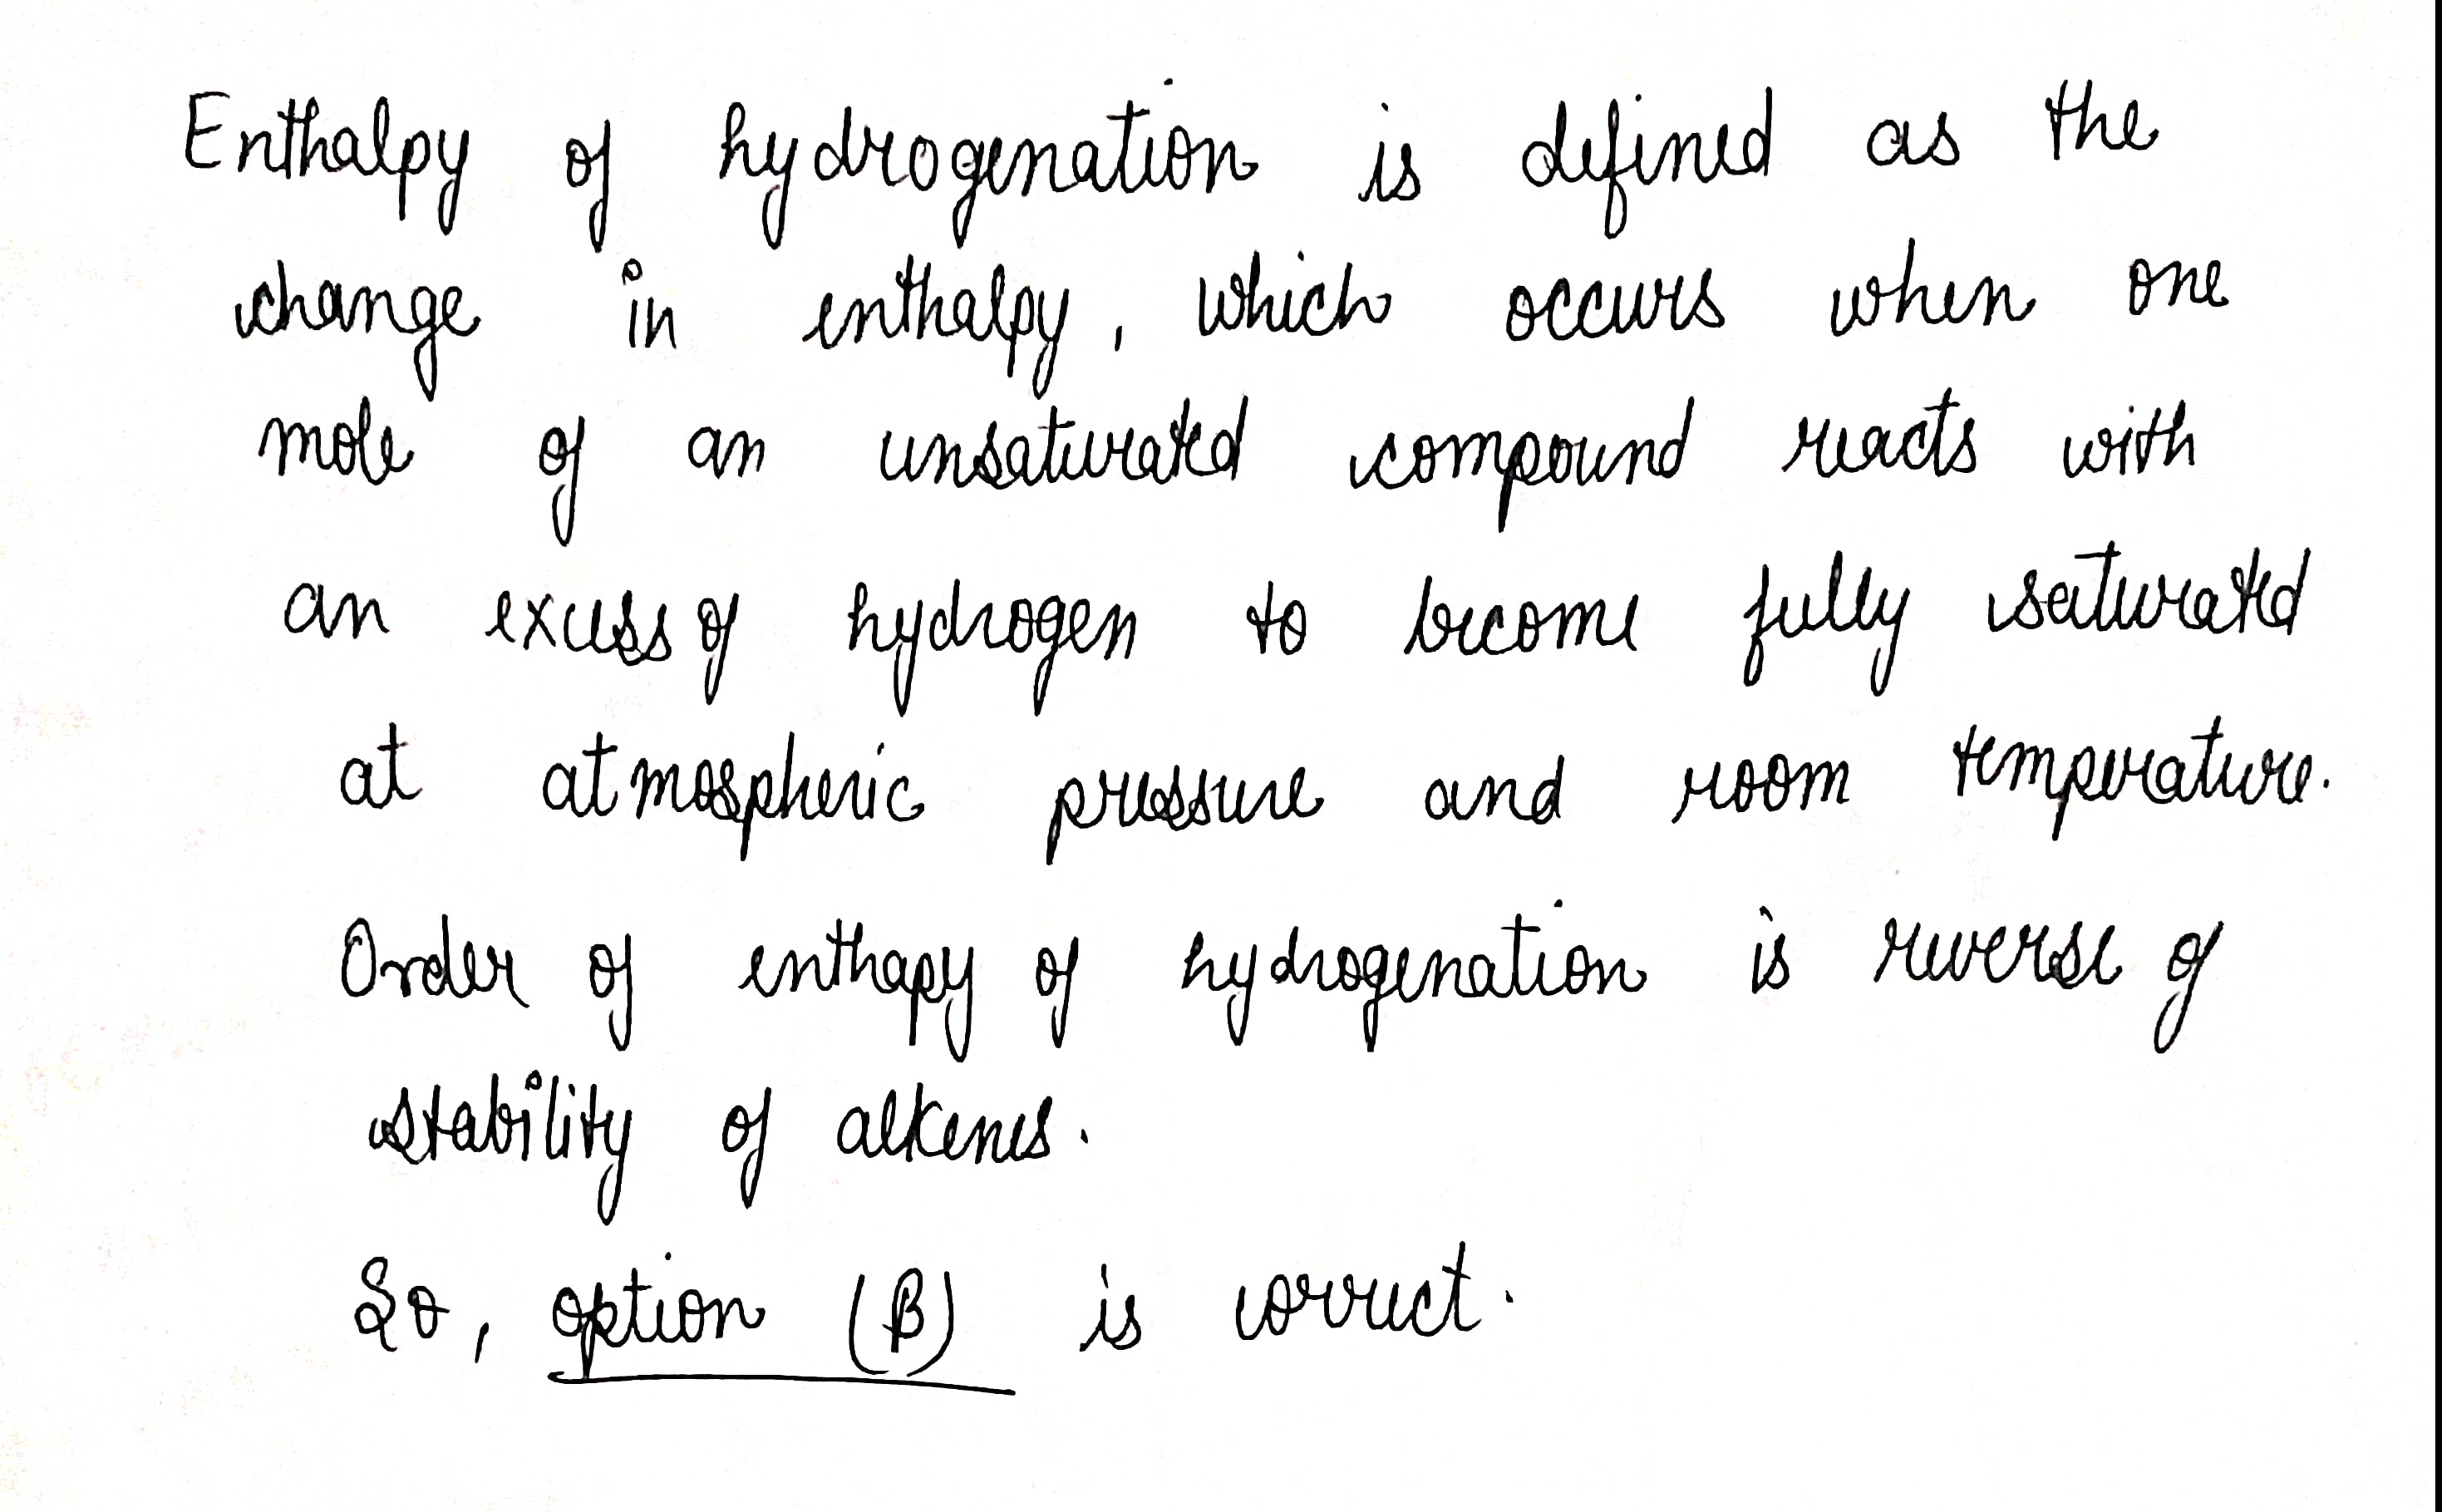 Enthalpy of hydrogenation is defined as the
change in enthalpy, which occurs when one
mole of an unsaturated compound reacts with
an excess of hydrogen to become fully saturated
at atmospheric pressure and room temperature.
Order of enthapy of hydrogenation is reverse of
stability of alkenes.
So, option (B) is correct.